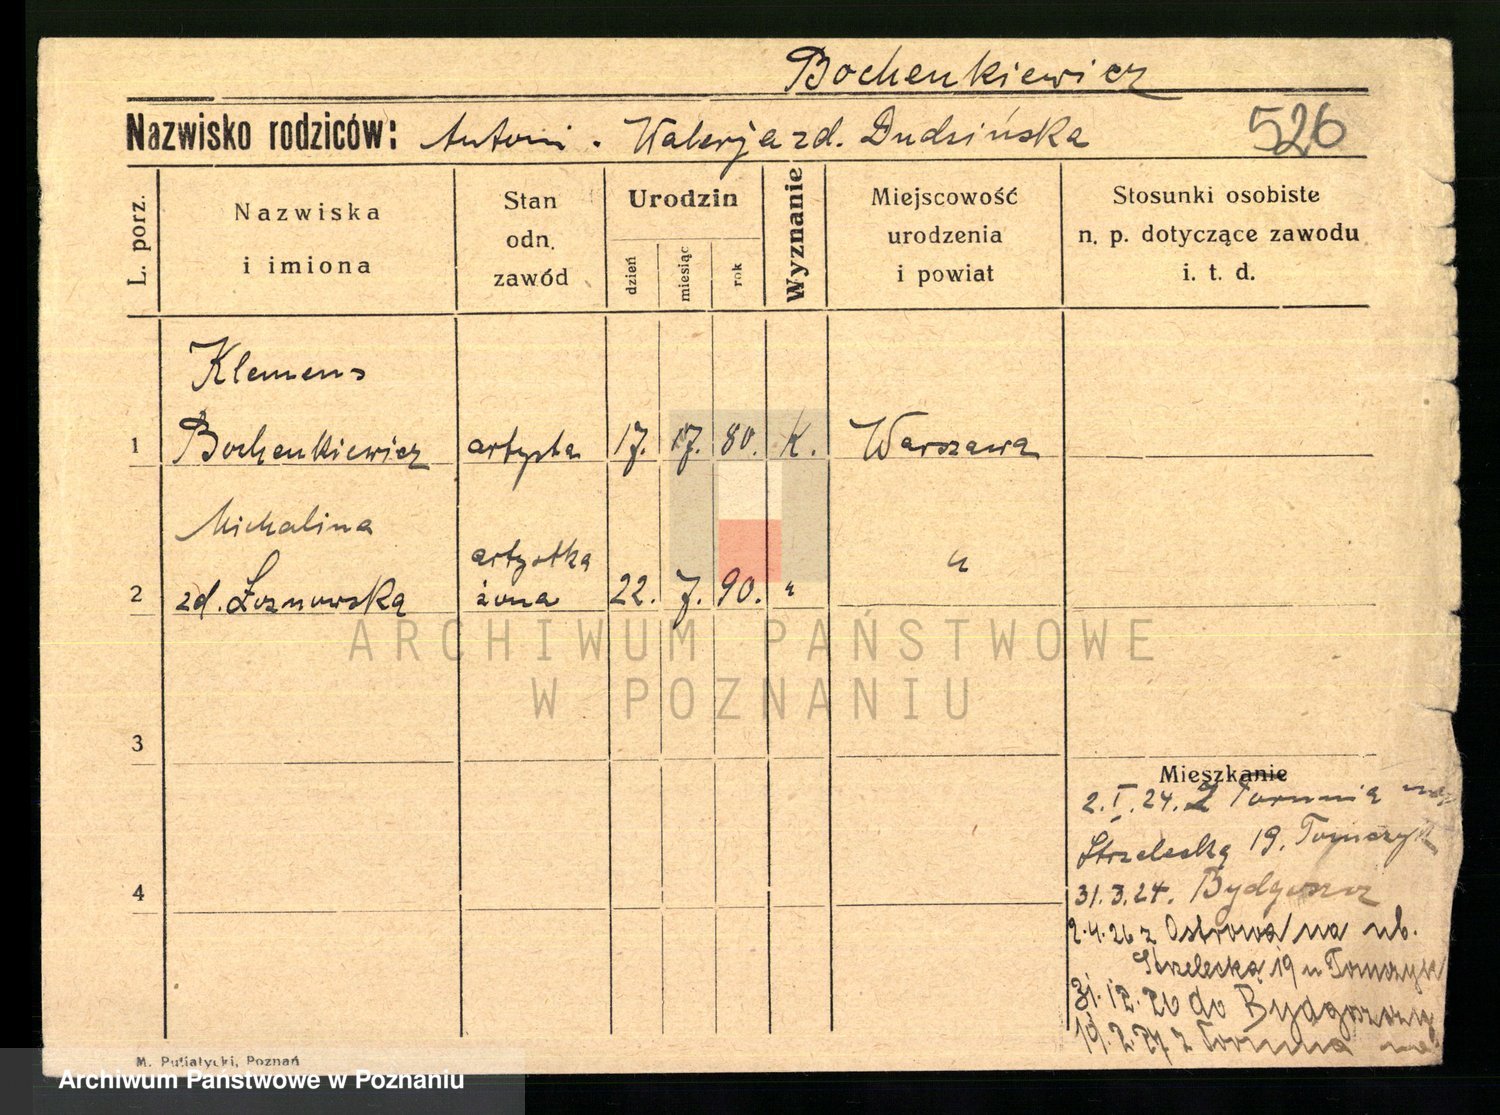 Bochenkiewicz
Nazwisko rodziców: Antoni . Walerja zd. Dudzińska 526
L. porz.
Nazwiska
i imiona
Stan
odn.
zawód
Urodzin
dzień
miesiąc
rok
Wyznanie
Miejscowość
urodzenia
i powiat
Stosunki osobiste
n. p. dotyczące zawodu
i. t. d.
Klemens
1 Bochenkiewicz artysta 17. 80. K. Warszawa
Michalina artystka "
2 zd. Łoznowska żona 22. 7. 90. "
ARCHIWUM PAŃSTWOWE
W POZNANIU
3
Mieszkanie
2.I.24. Z Torunia
Strzelecka 19. Tomczyk
4 31.3.24. Bydgoszcz
2.4.26 z Ostrowa na ul.
Strzelecką 19 u Tomczyk
31.12.26 do Bydgoszczy
19.2.27 z Torunia na
M. Putiatycki, Poznań
Archiwum Państwowe w Poznaniu